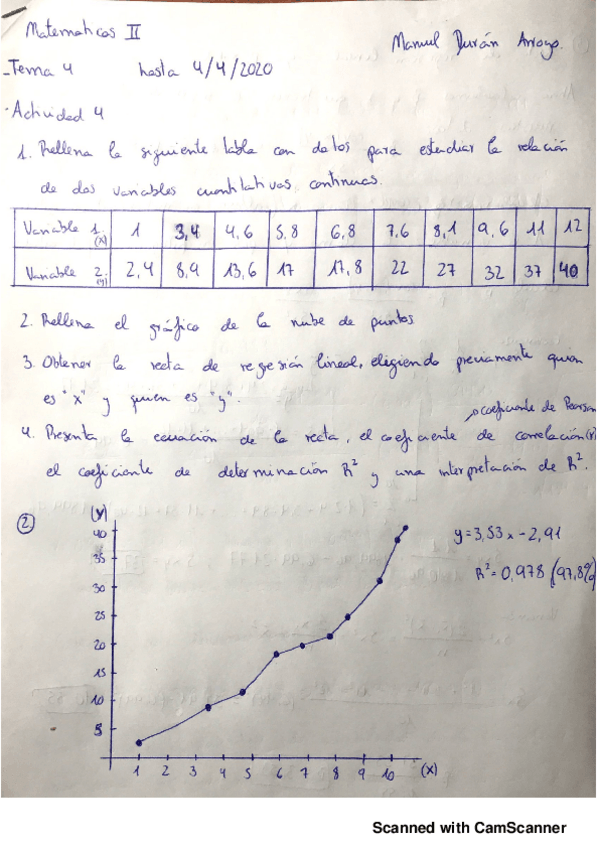 Matemáticas II
Manuel Durán Arroyo.
-Tema 4 hasta 4/4/2020
·Actividad 4
1. Rellena la siguiente tabla con datos para estudiar la relación
de dos variables cuantitativas continuas.
Variable 1 (x) 1 3,4 4,6 5,8 6,8 7,6 8,1 9,6 11 12
Variable 2 (y) 2,4 8,9 13,6 17 17,8 22 27 32 37 40
2. Rellena el gráfico de la nube de puntos
3. Obtener la recta de regresión lineal, eligiendo previamente quien
es "x" y quien es "y".
coeficiente de Pearson
4. Presenta la ecuación de la recta, el coeficiente de correlación (r)
el coeficiente de determinación R² y una interpretación de R².
2
(y)
40
35
30
25
20
15
10
5
1 2 3 4 5 6 7 8 9 10 (x)
y=3,53x-2,91
R²=0,978 (97,8%)
Scanned with CamScanner